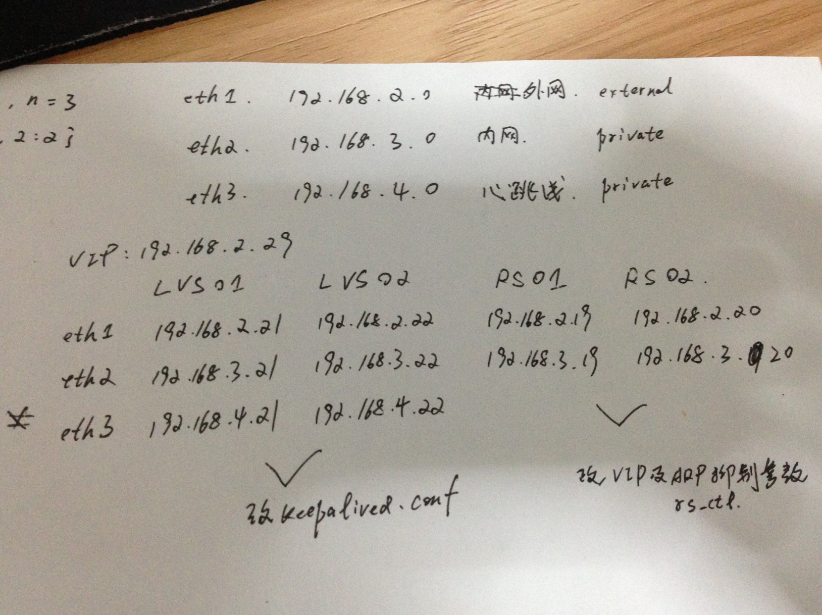 , n = 3 eth1. 192.168.2.0 外网. external
. 2:2j eth2. 192.168.3.0 内网. private
eth3. 192.168.4.0 心跳线. private
VIP: 192.168.2.29
LVS01 LVS02 RS01 RS02.
eth1 192.168.2.21 192.168.2.22 192.168.2.19 192.168.2.20
eth2 192.168.3.21 192.168.3.22 192.168.3.19 192.168.3.20
* eth3 192.168.4.21 192.168.4.22
改keepalived.conf
改VIP及ARP抑制参数
rs_ctl.